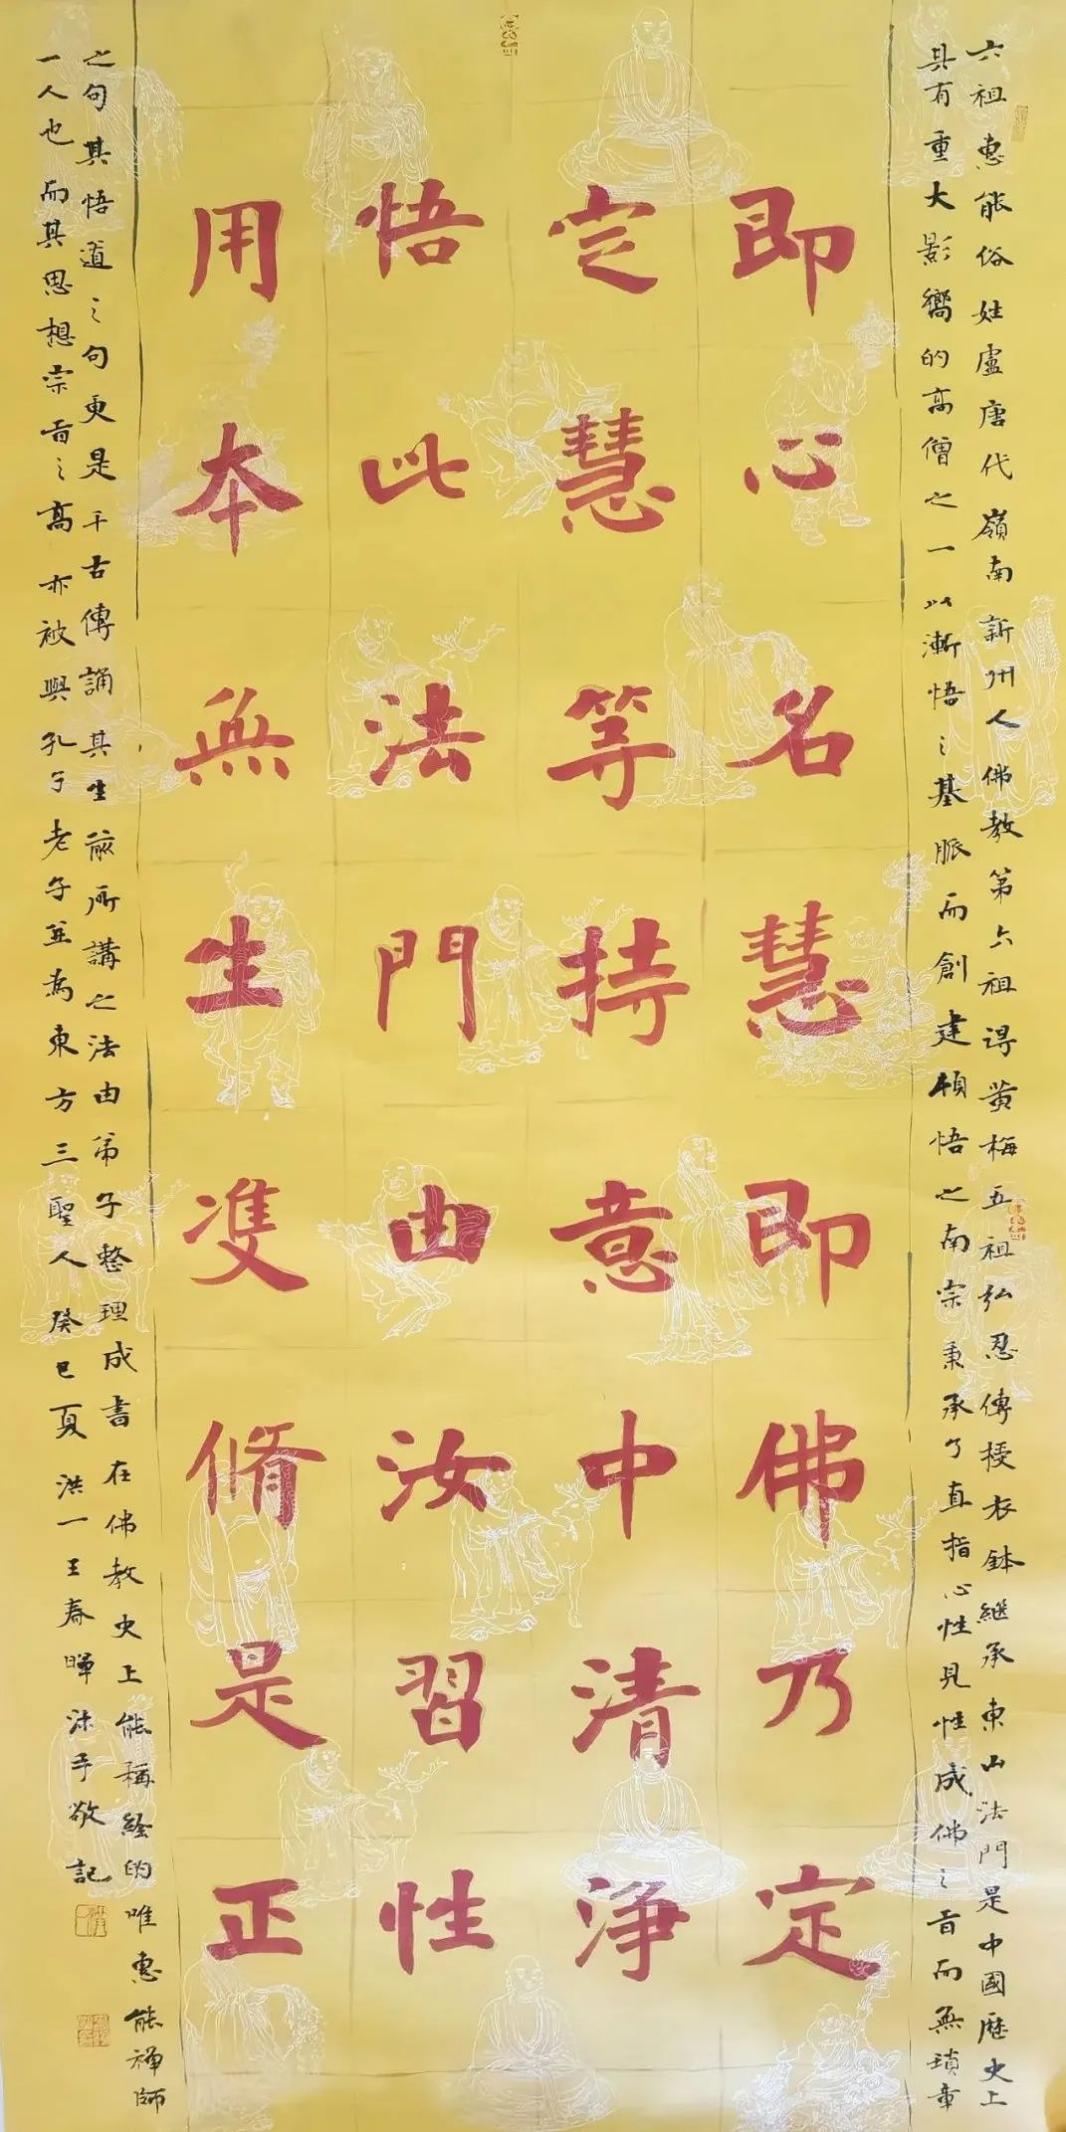 六祖惠能俗姓盧唐代嶺南新州人佛教第六祖得黃梅五祖弘忍傳授衣鉢繼承東山法門是中國歷史上
具有重大影響的高僧之一以漸悟之基脈而創建頓悟之南宗秉承了直指心性見性成佛之旨而無瑣章
即心名慧即佛乃定
定慧等持意中清淨
悟此法門由汝習性
用本無生雙脩是正
之句其悟道之句更是千古傳誦其生前所講之法由弟子整理成書在佛教史上能稱經的唯惠能禪師
一人也而其思想宗旨之高亦被與孔子老子並為東方三聖人癸巳夏洪一王春暉沐手敬記